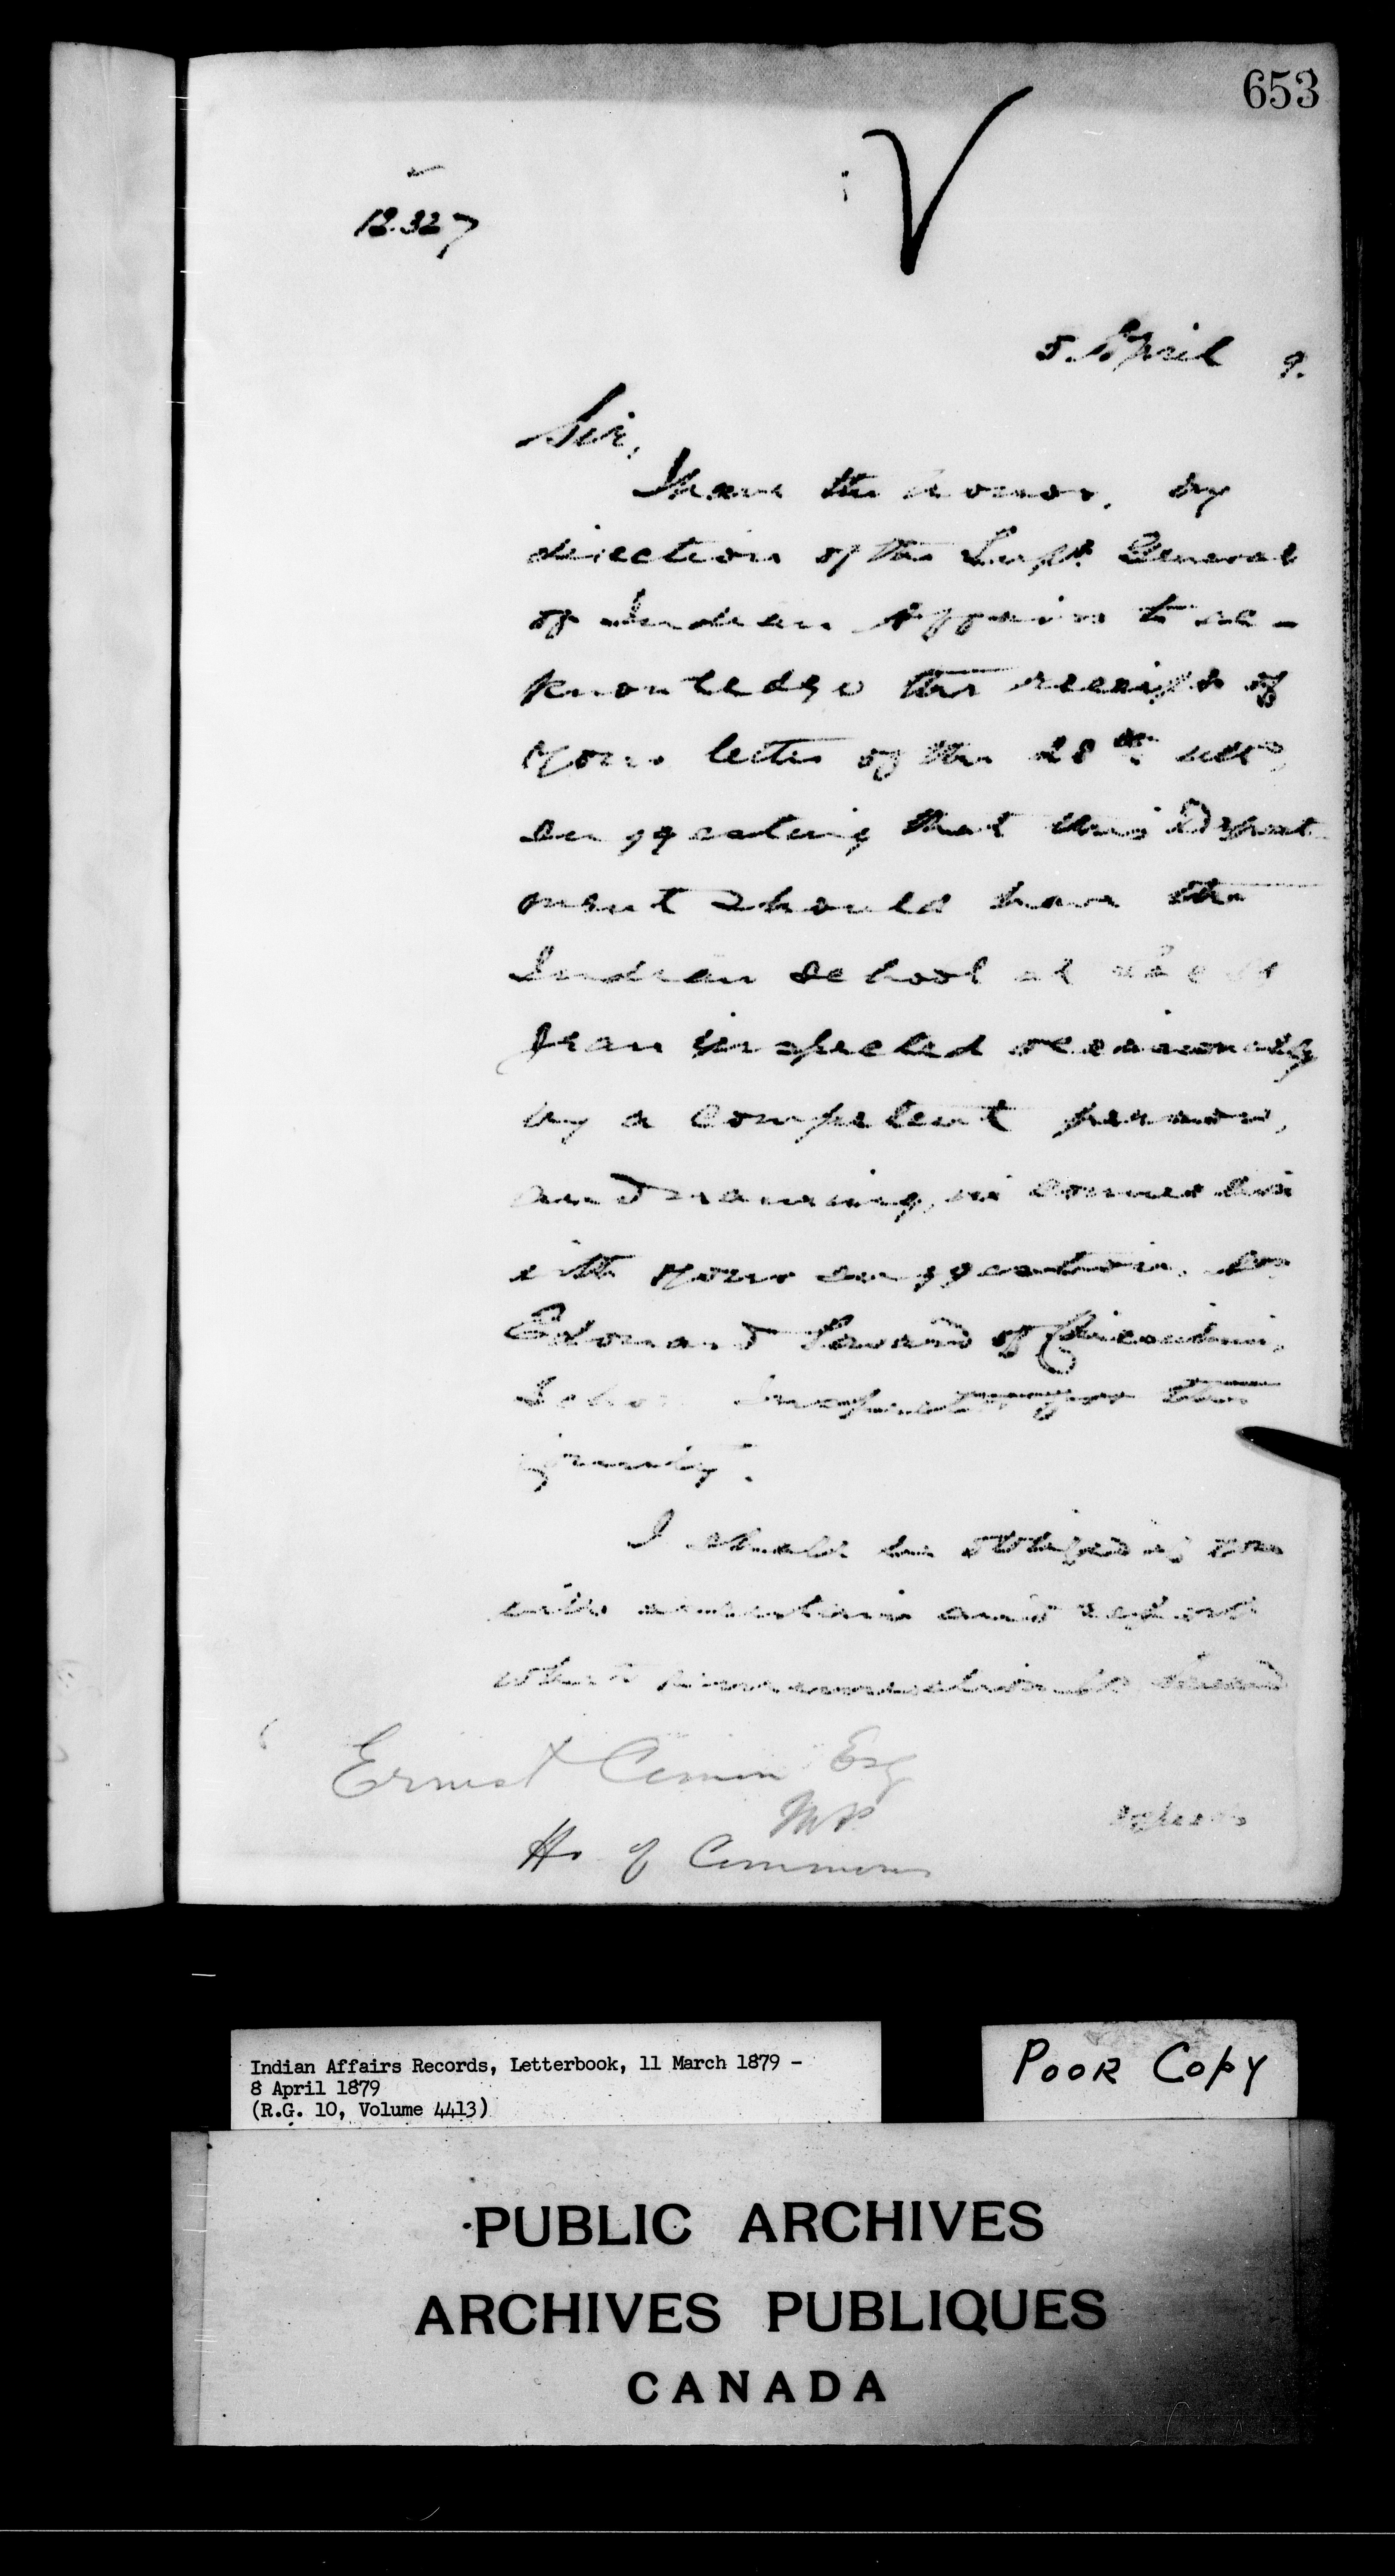 653
12.327
5 April 9.
Sir,
I have the honor, by
direction of the Supt. General
of Indian Affairs to ac-
knowledge the receipt of
your letter of the 28th ulto,
suggesting that this Depart-
ment should have the
Indian School at
Jean inspected occasionally
by a competent person,
and naming, in connection
with your suggestion,
Edouard Savard of Chicoutimi,
School Inspector for the
County.
I shall be obliged if you
will ascertain and report
what remuneration Mr Savard
Ernest Cimon Esq
MP
Ho of Commons
Indian Affairs Records, Letterbook, 11 March 1879 -
8 April 1879
(R.G. 10, Volume 4413)
POOR COPY
PUBLIC ARCHIVES
ARCHIVES PUBLIQUES
CANADA